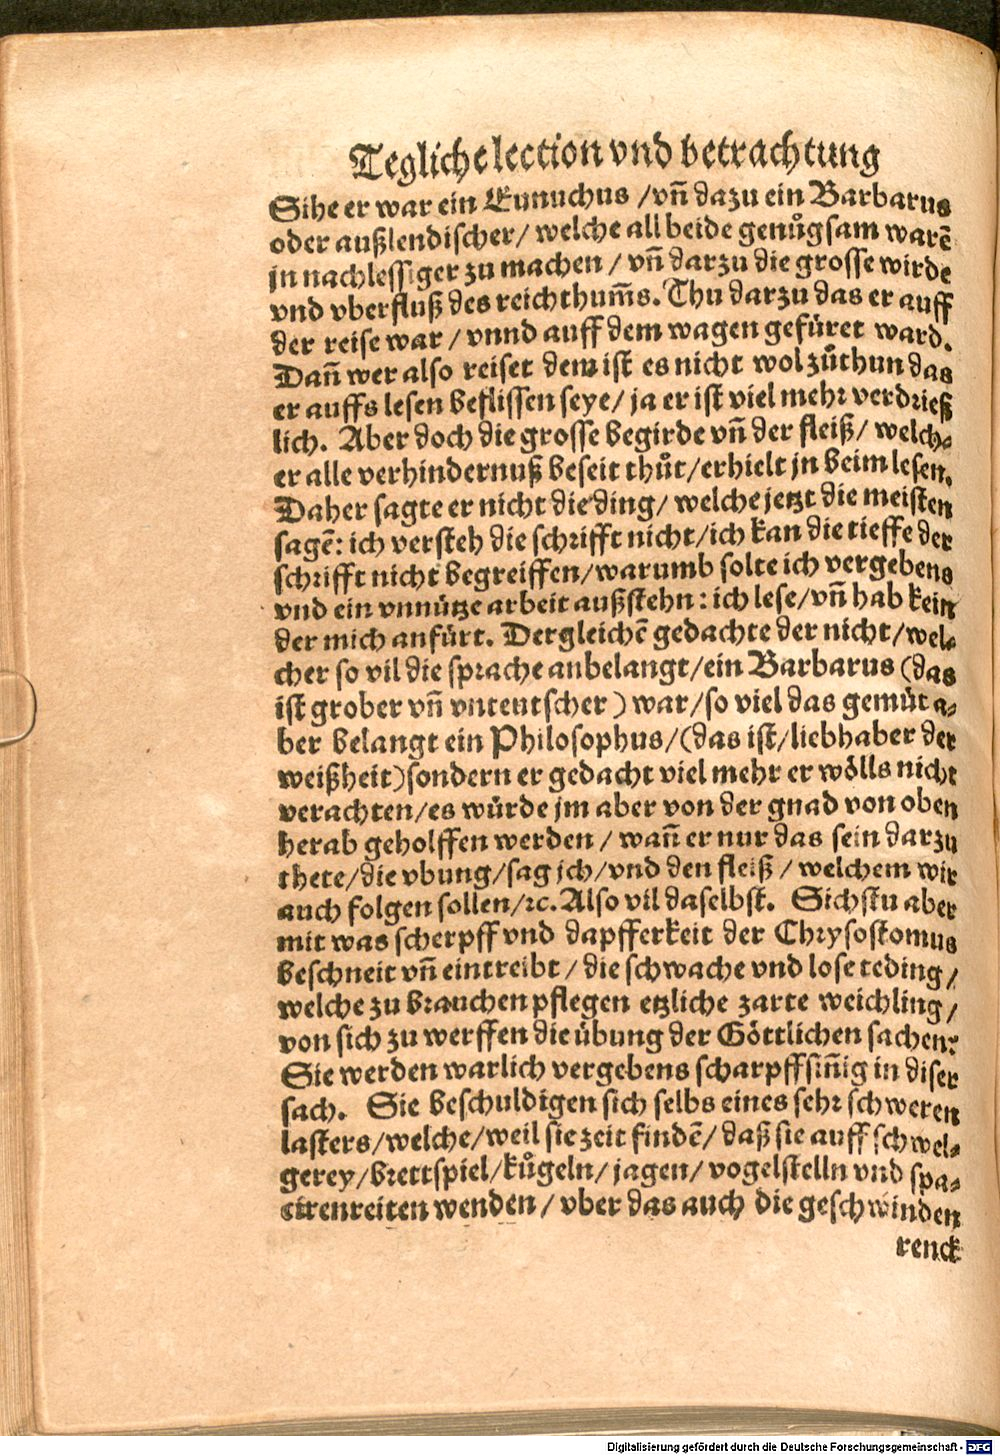 Tegliche lection vnd betrachtung
Sihe er war ein Eunuchus / vñ dazu ein Barbarus
oder außlendischer / welche all beide genůgsam warẽ
jn nachlessiger zu machen / vñ darzu die grosse wirde
vnd vberfluß des reichthum̃s. Thu darzu das er auff
der reise war / vnnd auff dem wagen gefüret ward.
Dañ wer also reiset dem ist es nicht wol zůthun das
er auffs lesen beflissen seye / ja er ist viel mehr verdrieß
lich. Aber doch die grosse begirde vñ der fleiß / welch⸗
er alle verhindernuß beseit thůt / erhielt jn beim lesen.
Daher sagte er nicht die ding / welche jetzt die meisten
sagẽ: ich versteh die schrifft nicht / ich kan die tieffe der
schrifft nicht begreiffen / warumb solte ich vergebens
vnd ein vnnütze arbeit außstehn: ich lese / vñ hab kein
der mich anfürt. Dergleichẽ gedachte der nicht / wel⸗
cher so vil die sprache anbelangt / ein Barbarus (das
ist grober vñ vnteutscher) war / so viel das gemüt a⸗
ber belangt ein Philosophus / (das ist / liebhaber der
weißheit) sondern er gedacht viel mehr er wölls nicht
verachten / es würde jm aber von der gnad von oben
herab geholffen werden / wañ er nur das sein darzu
thete / die vbung / sag jch / vnd den fleiß / welchem wir
auch folgen sollen / ꝛc. Also vil daselbst. Sichstu aber
mit was scherpff vnd dapfferkeit der Chrysostomus
beschneit vñ eintreibt / die schwache vnd lose teding /
welche zu brauchen pflegen etzliche zarte weichling /
von sich zu werffen die übung der Göttlichen sachen?
Sie werden warlich vergebens scharpffsiñig in diser
sach. Sie beschuldigen sich selbs eines sehr schweren
lasters / welche / weil sie zeit findẽ / daß sie auff schwel⸗
gerey / brettspiel / kůgeln / jagen / vogelstelln vnd spa⸗
cirenreiten wenden / vber das auch die geschwinden
renck
Digitalisierung gefördert durch die Deutsche Forschungsgemeinschaft - DFG